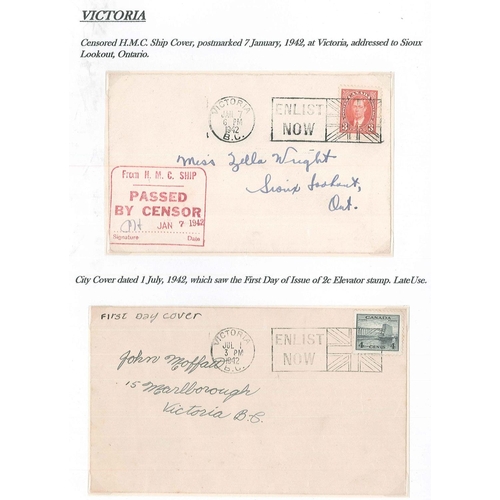 VICTORIA
Censored H.M.C. Ship Cover, postmarked 7 January, 1942, at Victoria, addressed to Sioux
Lookout, Ontario.
VICTORIA
JAN 7
6 PM
1942
B.C.
ENLIST
NOW
CANADA
3 3
Miss Zella Wright,
Sioux Lookout,
Ont.
From H. M. C. SHIP
PASSED
BY CENSOR
JAN 7 1942
Signature Date
City Cover dated 1 July, 1942, which saw the First Day of Issue of 2c Elevator stamp. Late Use.
FIRST DAY COVER
VICTORIA
JUL 1
3 PM
1942
B.C.
ENLIST
NOW
CANADA
4 CENTS 4
John Moffatt
15 Marlborough
Victoria B.C.